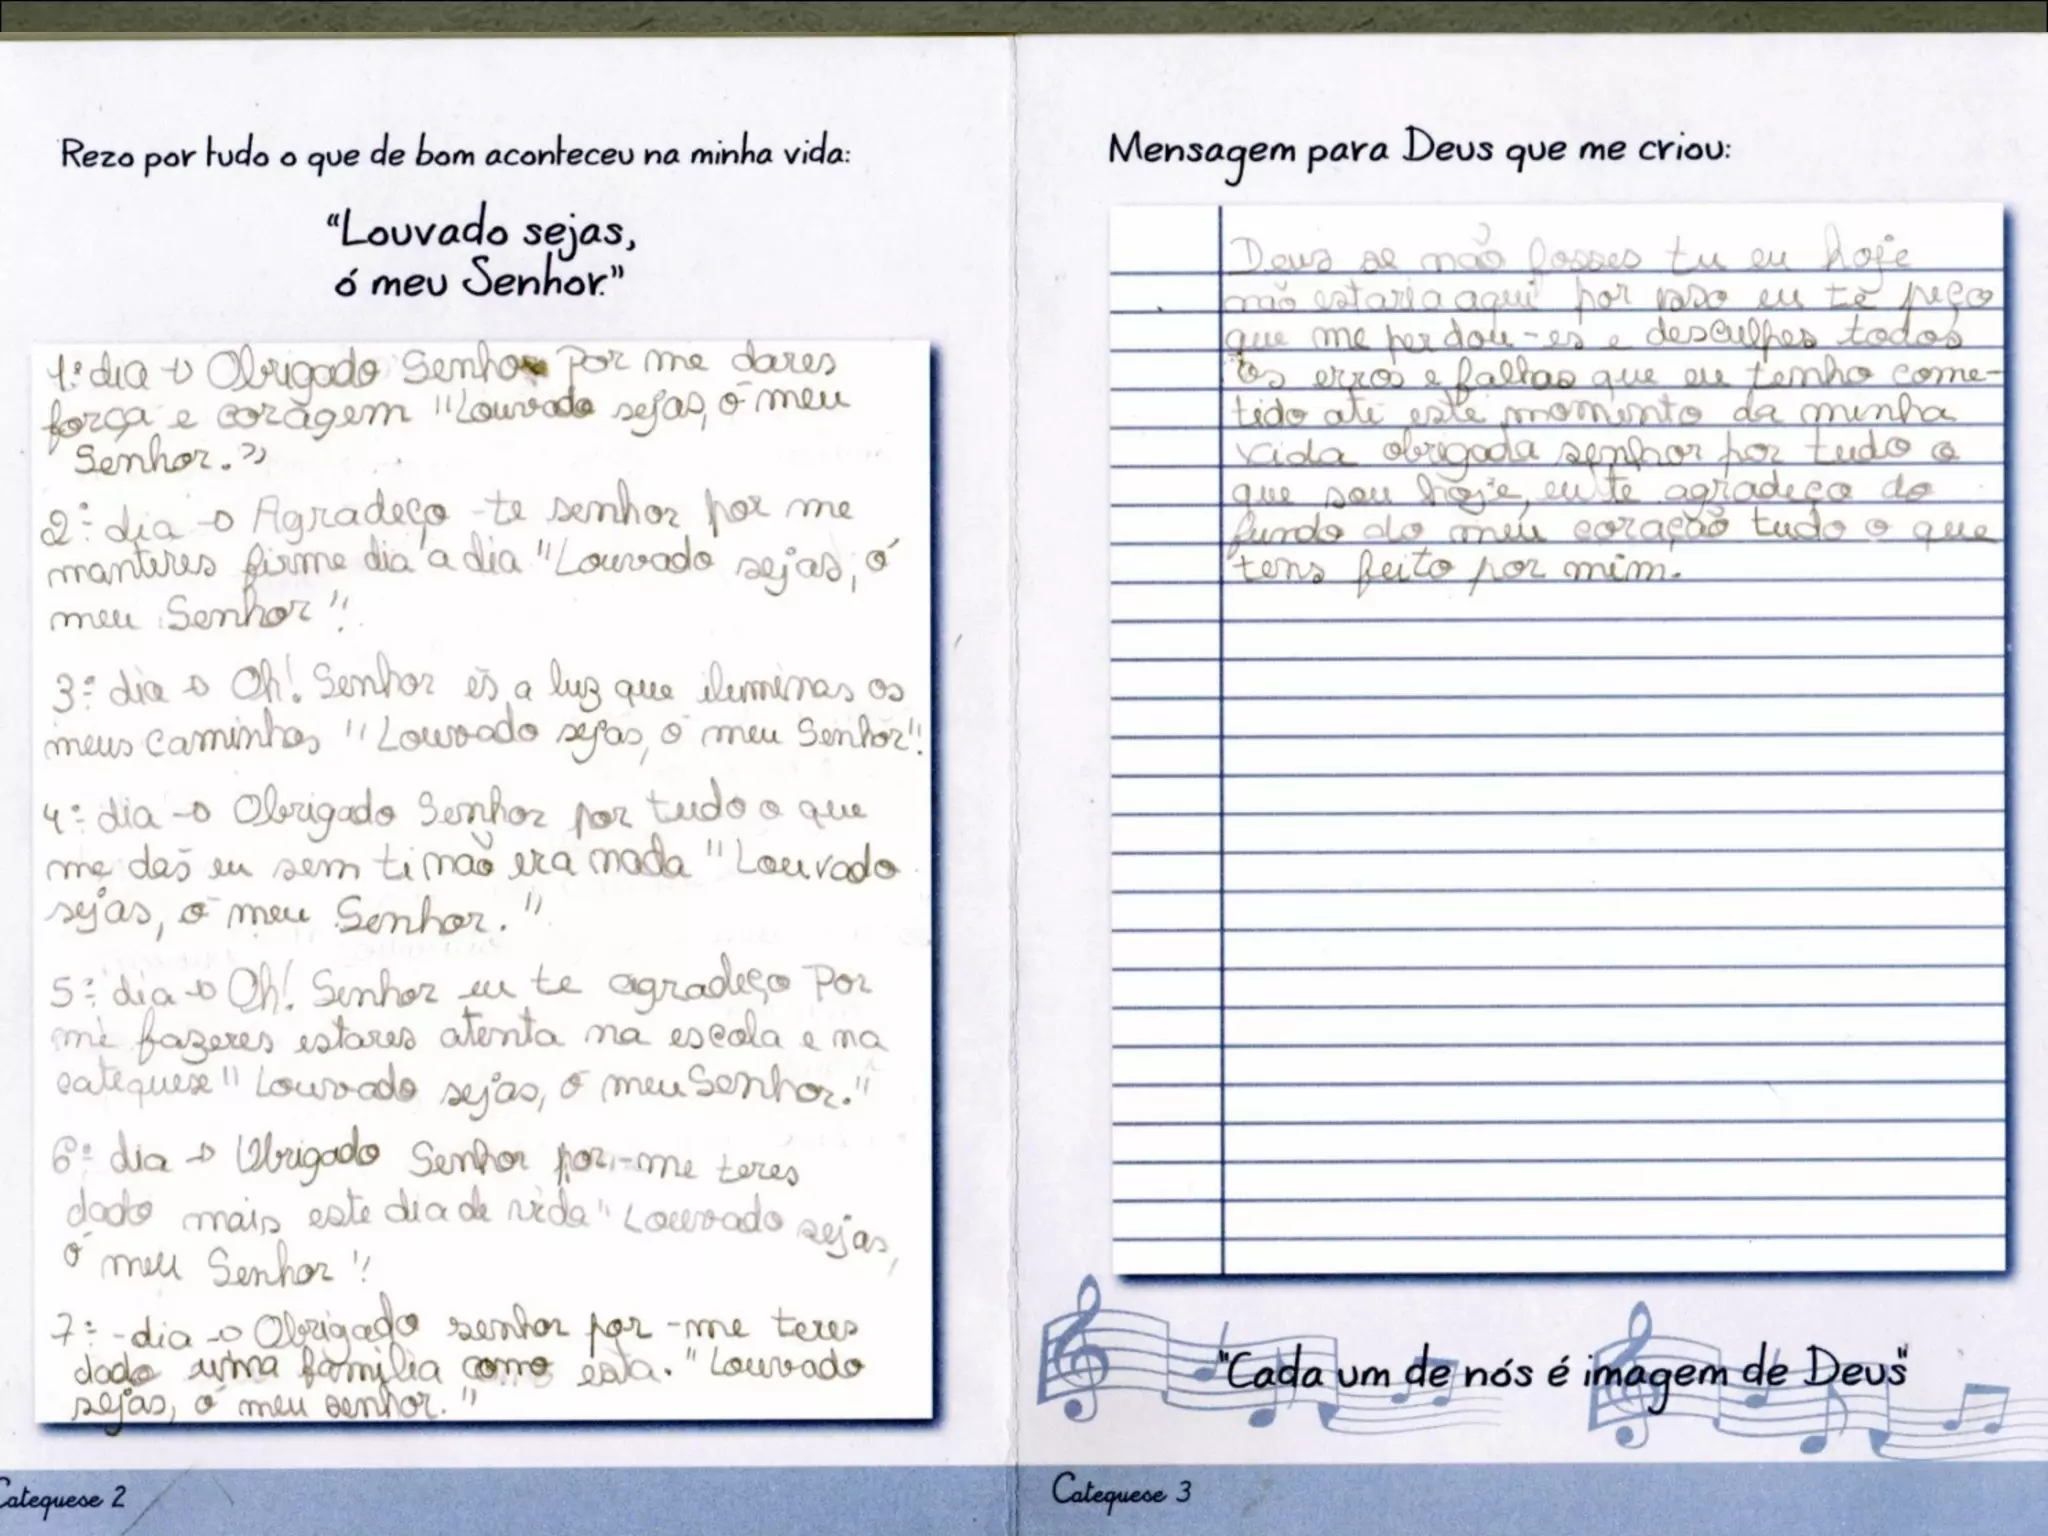 Rezo por tudo o que de bom aconteceu na minha vida:
“Louvado sejas,
ó meu Senhor.”
1.º dia → Obrigado Senhor Por me dares
força e coragem "Louvado sejas, ó meu
Senhor.”
2.º dia → Agradeço-te senhor por me
manteres firme dia a dia "Louvado sejas, ó
meu Senhor".
3.º dia → Oh! Senhor és a luz que iluminas os
meus caminhos "Louvado sejas, ó meu Senhor".
4.º dia → Obrigado Senhor por tudo o que
me das eu sem ti não era nada "Louvado
sejas, ó meu Senhor."
5.º dia → Oh! Senhor eu te agradeço Por
me fazeres estares atenta na escola e na
catequese "Louvado sejas, ó meu Senhor."
6.º dia → Obrigado Senhor por-me teres
dado mais este dia de vida "Louvado sejas,
ó meu Senhor".
7.º -dia → Obrigado senhor por-me teres
dado uma família como esta. "Louvado
sejas, ó meu senhor."
Catequese 2
Mensagem para Deus que me criou:
Deus se não fosses tu eu hoje
não estaria aqui por isso eu te peço
que me perdou-es e desculpes todos
os erros e falhas que eu tenho come-
tido até este momento da minha
vida obrigada senhor por tudo o
que sou hoje, eu te agradeço do
fundo do meu coração tudo o que
tens feito por mim.
"Cada um de nós é imagem de Deus"
Catequese 3